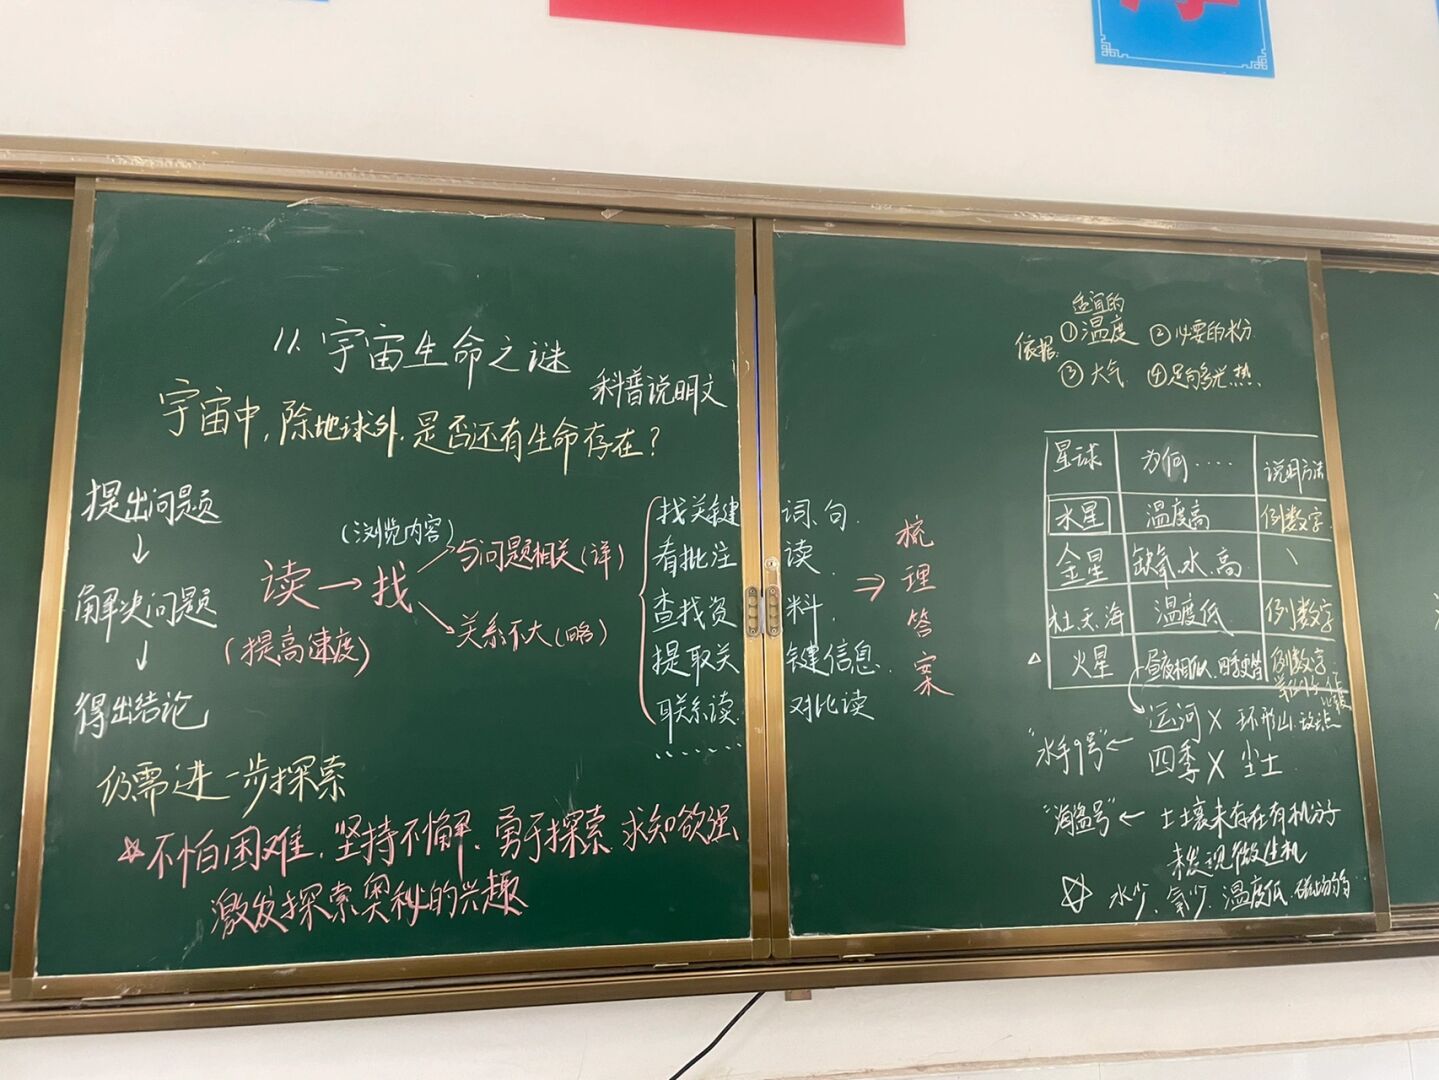 11. 宇宙生命之谜
科普说明文
宇宙中,除地球外,是否还有生命存在?
提出问题
↓
解决问题
↓
得出结论
仍需进一步探索
读→找
(提高速度)
(浏览内容)
与问题相关(详)
关系不大(略)
找关键词、句
看批注读
查找资料
提取关键信息
联系读 对比读
......
⇒梳理答案
☆不怕困难,坚持不懈、勇于探索 求知欲强
激发探索奥秘的兴趣
适宜的
依据:①温度 ②必要的水分
③大气 ④足够多光.热
星球 为何···· 说明方法
水星 温度高 例数字
金星 缺氧.水.高 、
木.土.天.海 温度低 例数字
△ 火星 昼夜相似、四季更替 例数字
"水手9号"← 运河× 环形山
四季× 尘土
"海盗号"← 土壤未存在有机分子
未发现微生机
☆ 水少、氧少、温度低、磁场弱